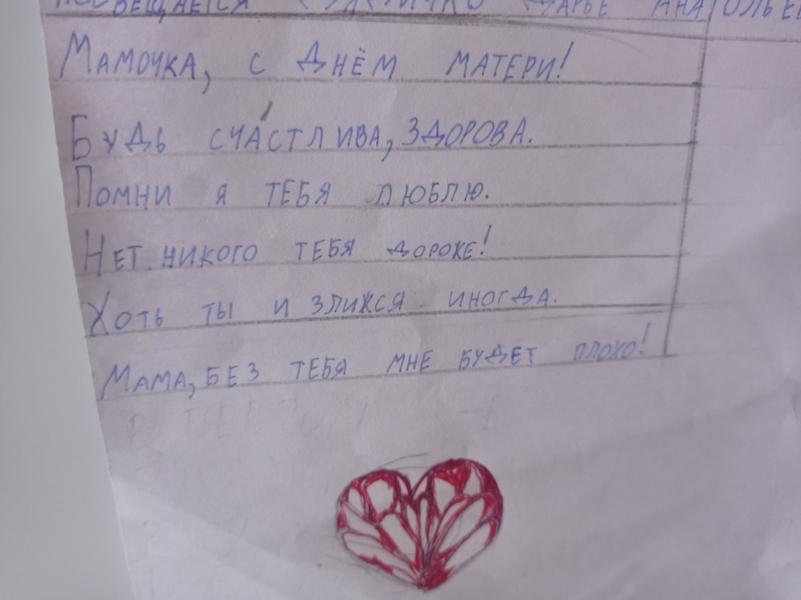 ПОСВЕЩАЕТСЯ ДАРЬЕ АНАТОЛЬЕ
МАМОЧКА, С ДНЁМ МАТЕРИ!
БУДЬ СЧАСТЛИВА, ЗДОРОВА.
ПОМНИ Я ТЕБЯ ЛЮБЛЮ.
НЕТ НИКОГО ТЕБЯ ДОРОЖЕ!
ХОТЬ ТЫ И ЗЛИЖСЯ ИНОГДА.
МАМА, БЕЗ ТЕБЯ МНЕ БУДЕТ ПЛОХО!